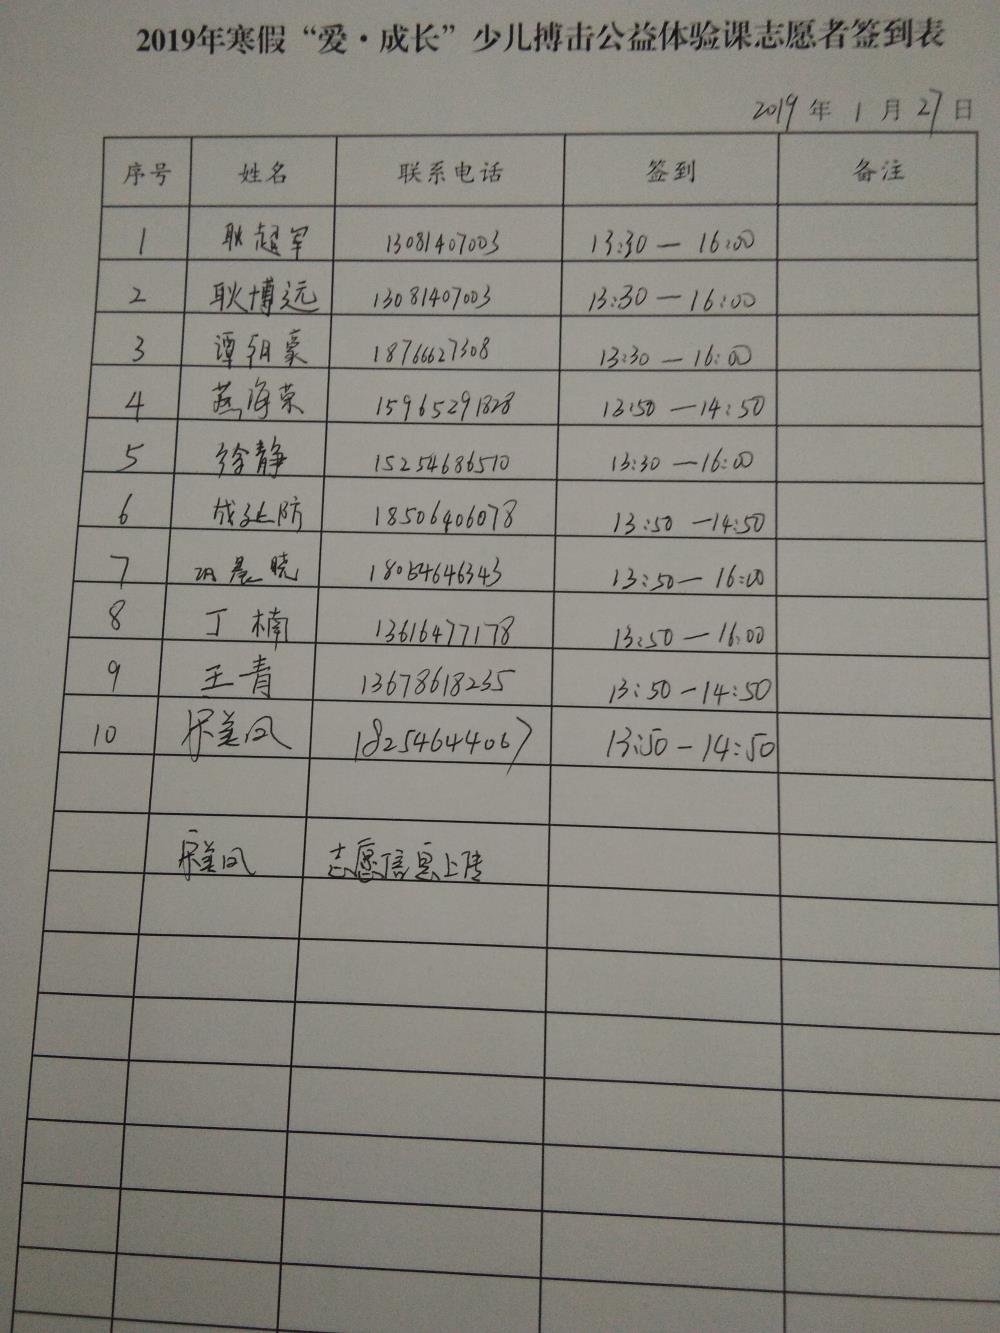 2019年寒假“爱·成长”少儿搏击公益体验课志愿者签到表
2019年1月27日
序号 姓名 联系电话 签到 备注
1 耿超军 13081407003 13:30—16:00
2 耿博远 13081407003 13:30—16:00
3 谭朝豪 18766627308 13:30—16:00
4 燕海荣 15965291828 13:50—14:50
5 徐静 15254686510 13:30—16:00
6 成延防 18506406078 13:50—14:50
7 晨晓 18054646343 13:50—16:00
8 丁楠 13616477178 13:50—16:00
9 王青 13678618235 13:50—14:50
10 宋美凤 18254644067 13:50—14:50
宋美凤 志愿信息上传